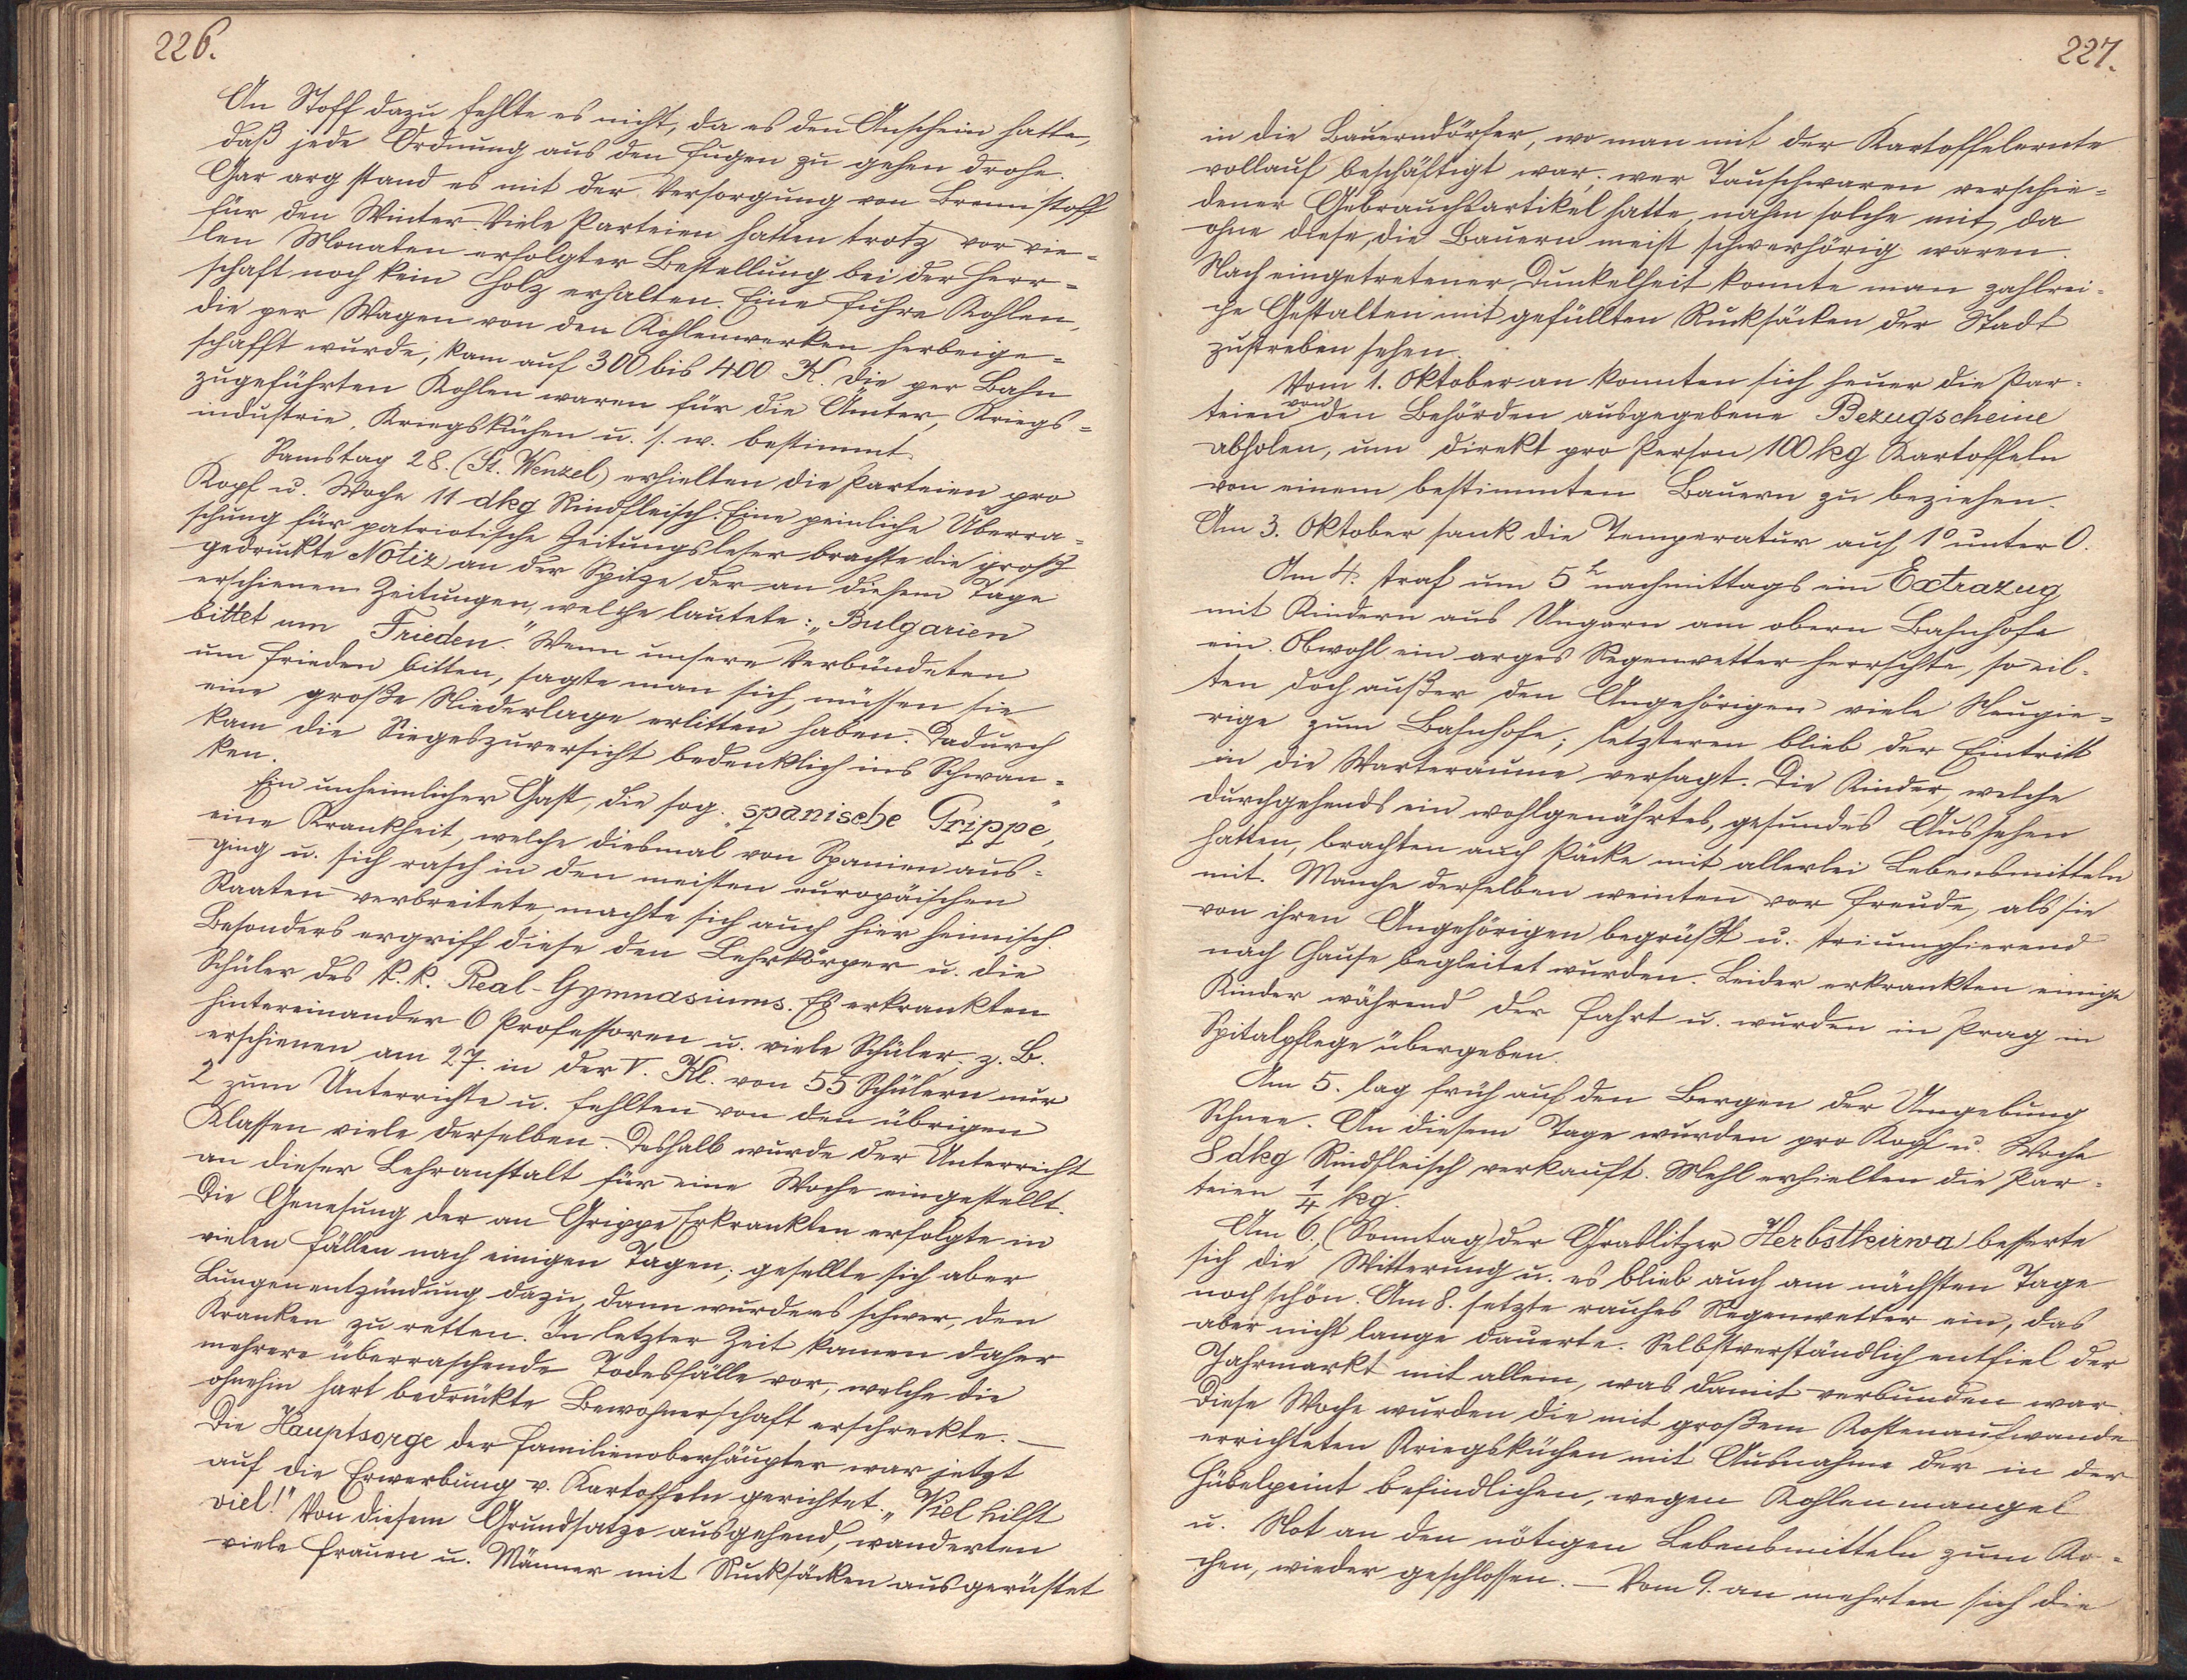 226.
An Stoff dazu fehlte es nicht, da es den Anschein hatte,
daß jede Ordnung aus den Fugen zu gehen drohe.
Gar arg stand es mit der Versorgung von Brennstoff
für den Winter. Viele Parteien hatten trotz vor vie=
len Monaten erfolgter Bestellung bei der Herr=
schaft noch kein Holz erhalten. Eine Fuhre Kohlen,
die per Wagen von den Kohlenwerken herbeige=
schafft wurde, kam auf 300 bis 400 K. Die per Bahn
zugeführten Kohlen waren für die Ämter, Kriegs=
industrie, Kriegsküchen u. s. w. bestimmt.
Samstag 28. (St. Wenzel) erhielten die Parteien pro
Kopf u. Woche 11 dkg Rindfleisch. Eine peinliche Überra=
schung für patriotische Zeitungsleser brachte die groß
gedruckte Notiz an der Spitze der an diesem Tage
erschienen Zeitungen, welche lautete: „Bulgarien
bittet um Frieden." Wenn unsere Verbündeten
um Frieden bitten, sagte man sich, müssen sie
eine große Niederlage erlitten haben. Dadurch
kam die Siegeszuversicht bedenklich ins Schwan=
ken.
Ein unheimlicher Gast, die sog. „spanische Grippe",
eine Krankheit, welche diesmal von Spanien aus=
ging u. sich rasch in den meisten europäischen
Staaten verbreitete, machte sich auch hier heimisch.
Besonders ergriff diese den Lehrkörper u. die
Schüler des k. k. Real-Gymnasiums. Es erkrankten
hintereinander 6 Professoren u. viele Schüler, z. B.
erschienen am 27. in der V. Kl. von 55 Schülern nur
2 zum Unterrichte u. fehlten von den übrigen
Klassen viele derselben. Deshalb wurde der Unterricht
an dieser Lehranstalt für eine Woche eingestellt.
Die Genesung der an Grippe Erkrankten erfolgte in
vielen Fällen nach einigen Tagen; gesellte sich aber
Lungenentzündung dazu, dann wurde es schwer, den
Kranken zu retten. In letzter Zeit kamen daher
mehrere überraschende Todesfälle vor, welche die
ohnehin hart bedrückte Bewohnerschaft erschreckte. —
Die Hauptsorge der Familienoberhäupter war jetzt
auf die Erwerbung v. Kartoffeln gerichtet. „Viel hilft
viel!" Von diesem Grundsatze ausgehend, wanderten
viele Frauen u. Männer mit Rucksäcken ausgerüstet
227.
in die Bauerndörfer, wo man mit der Kartoffelernte
vollauf beschäftigt war. wer Tauschwaren verschie=
dener Gebrauchsartikel hatte, nahm solche mit, da
ohne diese, die Bauern meist schwerhörig waren.
Nach eingetretener Dunkelheit konnte man zahlrei=
che Gestalten mit gefüllten Rucksäcken der Stadt
zustreben sehen.
Vom 1. Oktober an konnten sich heuer die Par=
teien von den Behörden ausgegebene Bezugscheine
abholen, um direkt pro Person 100 kg Kartoffeln
von einem bestimmten Bauern zu beziehen.
Am 3. Oktober sank die Temperatur auf 1° unter 0.
Am 4. traf um 5 h nachmittags ein Extrazug
mit Kindern aus Ungarn am obern Bahnhofe
ein. Obwohl ein arges Regenwetter herrschte, so eil=
ten doch außer den Angehörigen viele Neugie=
rige zum Bahnhofe; letzteren blieb der Eintritt
in die Warteräume versagt. Die Kinder, welche
durchgehends ein wohlgenährtes, gesundes Aussehen
hatten, brachten auch Päcke mit allerlei Lebensmitteln
mit. Manche derselben weinten vor Freude, als sie
von ihren Angehörigen begrüßt u. triumphierend
nach Hause begleitet wurden. Leider erkrankten einige
Kinder während der Fahrt u. wurden in Prag in
Spitalpflege übergeben.
Am 5. lag früh auf den Bergen der Umgebung
Schnee. An diesem Tage wurden pro Kopf u. Woche
8 dkg Rindfleisch verkauft. Mehl erhielten die Par=
teien 1/4 kg.
Am 6., (Sonntag) der Graslitzer Herbstkirwa besserte
sich die Witterung u. es blieb auch am nächsten Tage
noch schön. Am 8. setzte rauhes Regenwetter ein, das
aber nicht lange dauerte. Selbstverständlich entfiel der
Jahrmarkt mit allem, was damit verbunden war.
Diese Woche wurden die mit großem Kostenaufwande
errichteten Kriegsküchen mit Ausnahme der in der
Hübelpeint befindlichen, wegen Kohlenmangel
u. Not an den nötigen Lebensmitteln zum Ko=
chen, wieder geschlossen. — Vom 9. an mehrten sich die